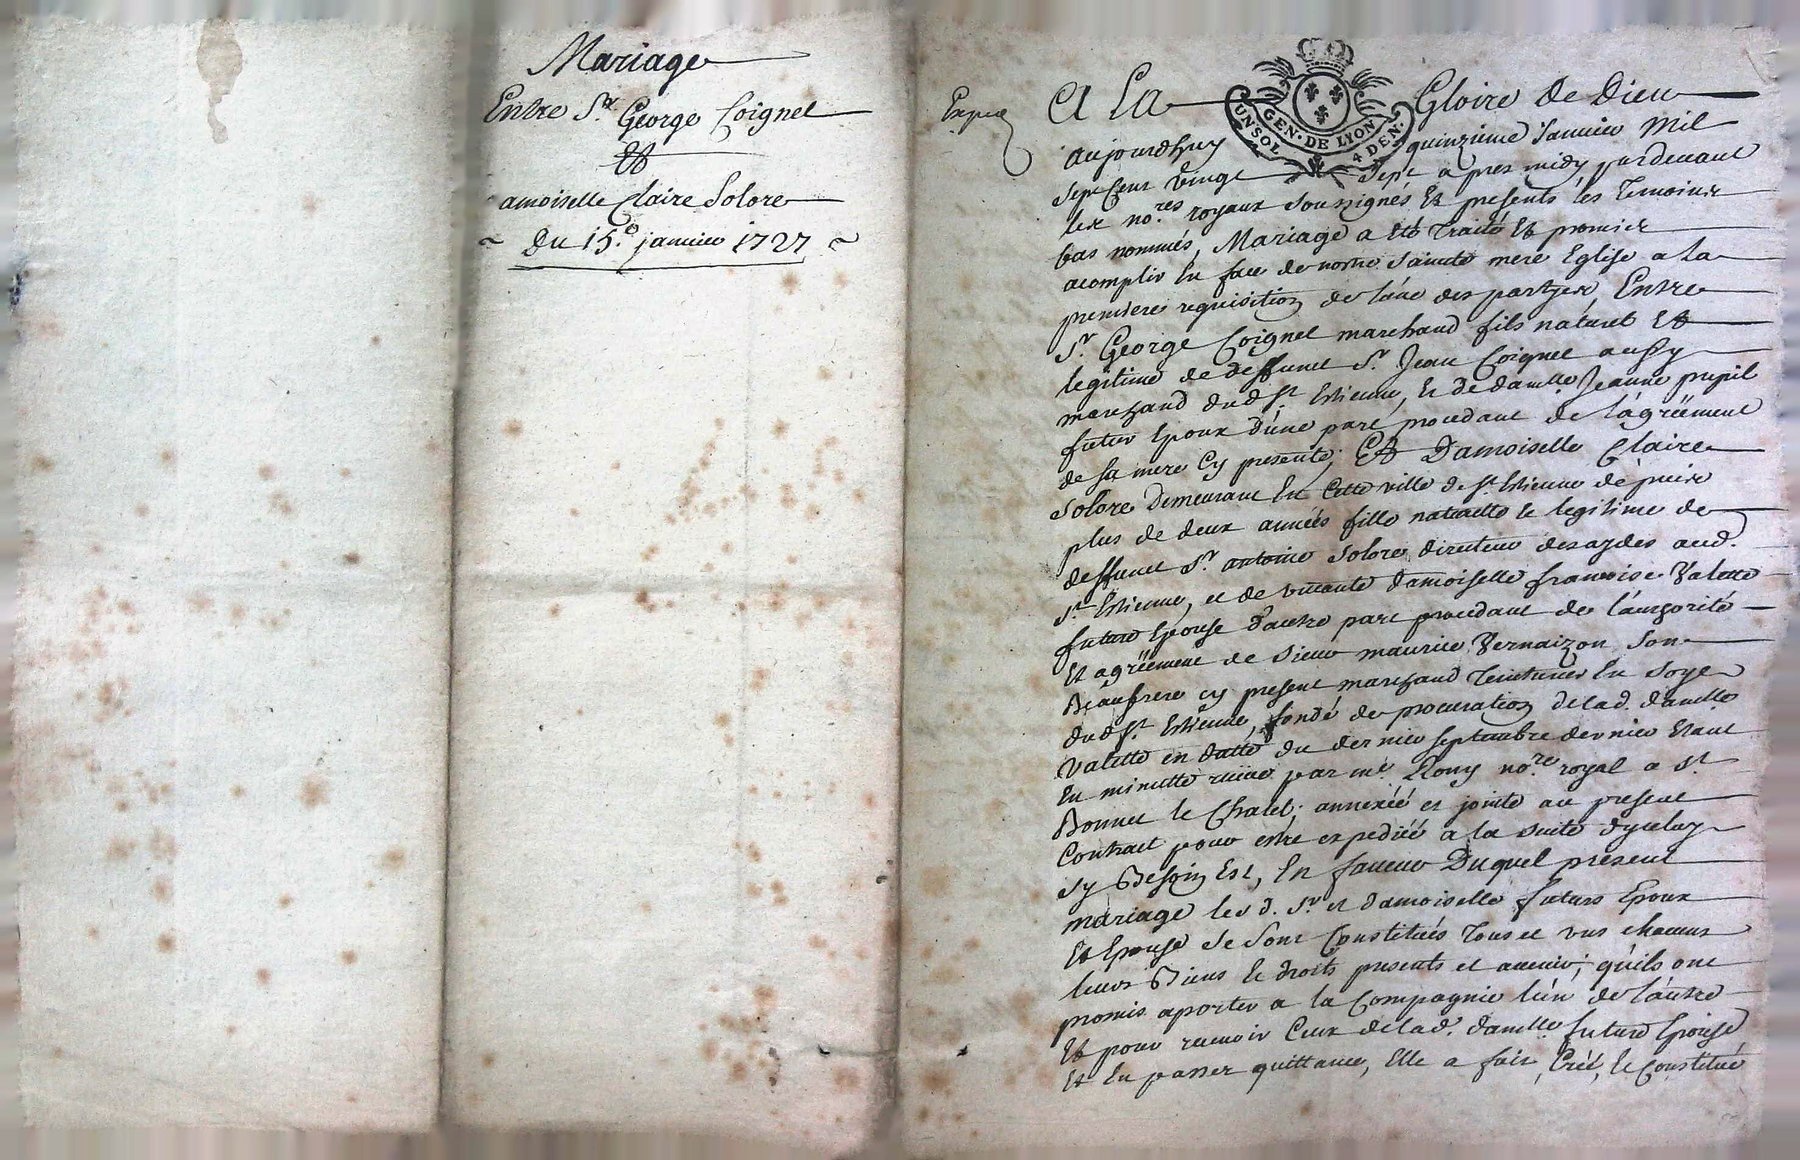 Mariage
Entre Sr. George Coignet
Et
amoiselle Claire Solore
~ Du 15e. janvier 1727 ~
Expé
A La Gloire de Dieu
UN SOL GEN. DE LYON 4 DEN.
aujourdhuy quinzieme Janvier Mil
sept Cent vingt sept a pres midy pardevant
les no.res royaux soussignés Et presents les Temoins
bas nommés, Mariage a eté Traité Et promis
acomplir En face de nostre Sainte mere Eglise a la
premiere requisition de l'une des partyes, Entre
Sr. George Coignet marchand fils naturel Et
legitime de deffunct Sr. Jean Coignet aussy
marchand dud St. Estienne, Et de damlle Jeanne pupil
futur Epoux d'une part procedant de l'agréement
de sa mere Cy presente; Et Damoiselle Claire
Solore Demeurant En Cette ville de St. Estienne dépuis
plus de deux années fille naturelle Et legitime de
deffunct Sr. antoine Solore directeur des aydes aud.
St. Estienne, et de vivante Damoiselle francoise Valette
future Epouse d'autre part procedant de l'authorité
Et agréement de Sieur maurice Vernaizon Son
Beaufrere cy present marchand Teinturier En Soye
dud St. Estienne, fondé de procuration de lad. damlle
Valette en datte du dernier septembre dernier Etant
En minutte receue par me. Rony no.re royal a St.
Bonnet le Chatel; annexée et jointe au present
Contract pour estre expediée a la suitte d'yceluy
sy Besoin Est, En faveur Duquel present
mariage les d. Sr. et damoiselle futurs Epoux
Et Epouse se sont Constitués Tous et uns chacuns
leurs Biens Et droits presents et avenir; qu'ils ont
promis aporter a la Compagnie l'un de l'autre
Et pour recevoir Ceux de lad. damlle future Epouse
Et En passer quittance, Elle a fait, Créé, Et Constitué